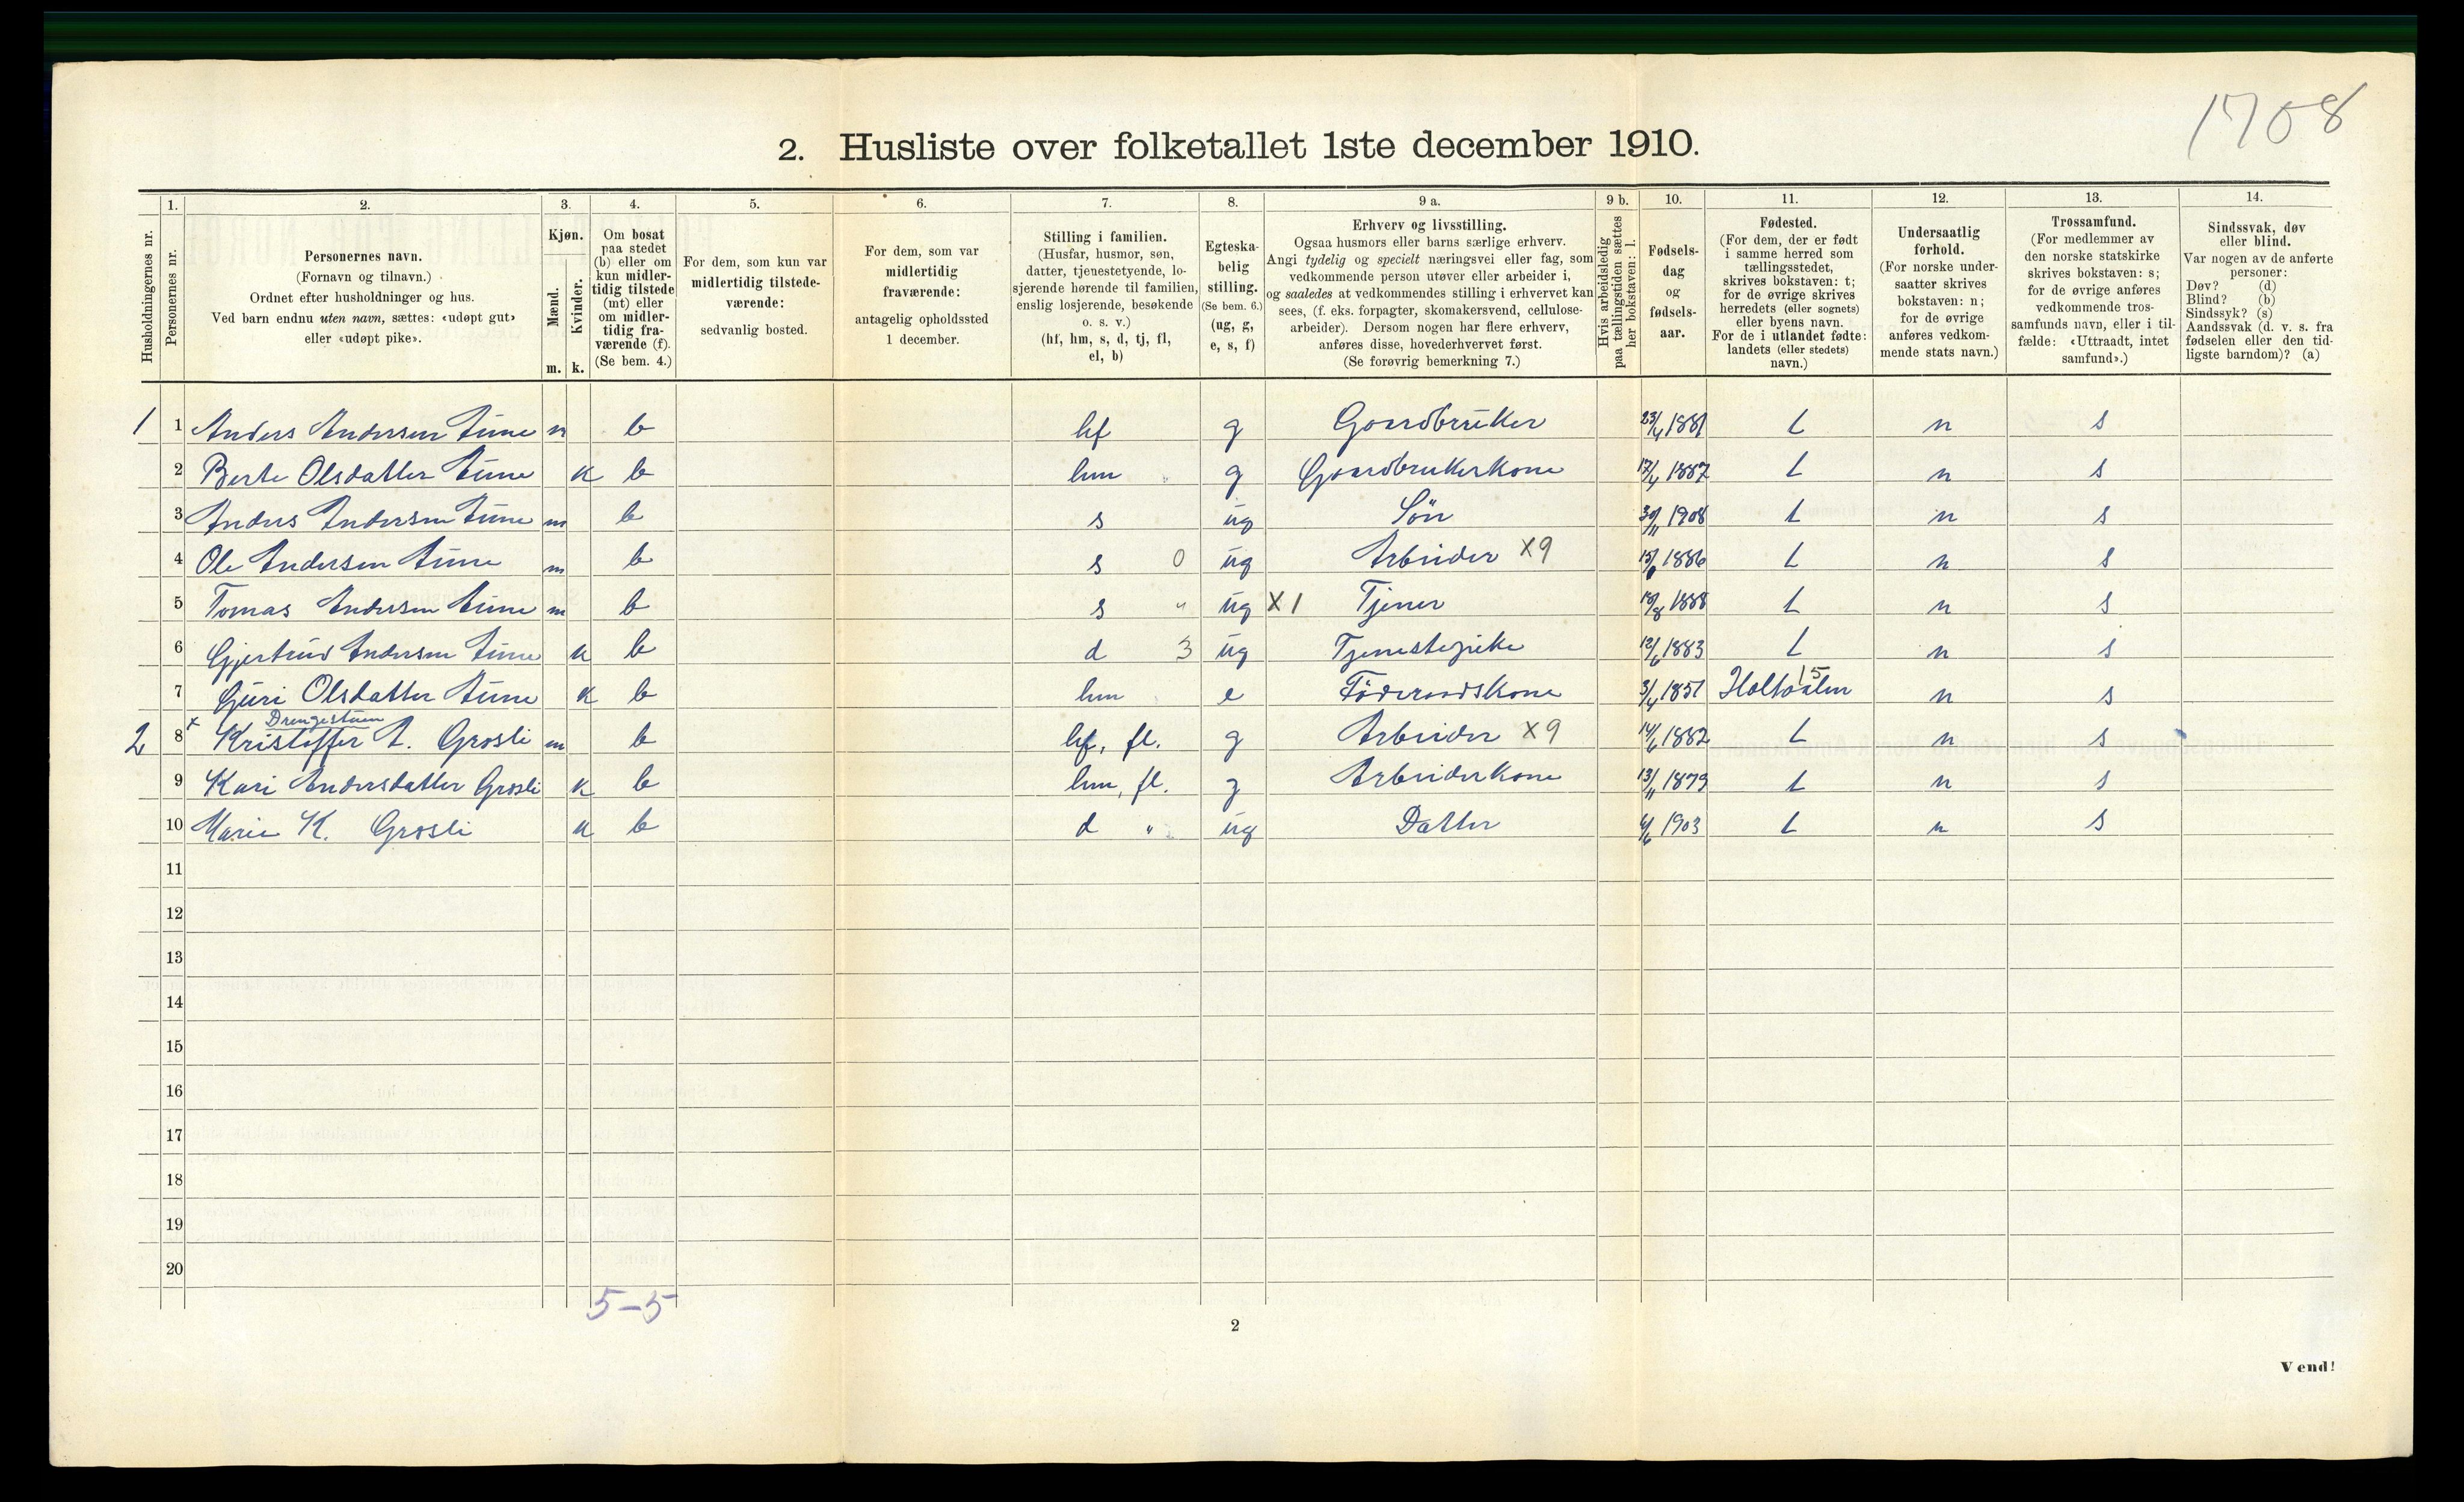 1708
2. Husliste over folketallet 1ste december 1910.
Husholdningernes nr.
1.
Personernes nr.
2.
Personernes navn.
(Fornavn og tilnavn.)
Ordnet efter husholdninger og hus.
Ved barn endnu uten navn, sættes: «udøpt gut»
eller «udøpt pike».
3.
Kjøn.
Mænd.
Kvinder.
m. k.
4.
Om bosat
paa stedet
(b) eller om
kun midler-
tidig tilstede
(mt) eller
om midler-
tidig fra-
værende (f).
(Se bem. 4.)
5.
For dem, som kun var
midlertidig tilstede-
værende:
sedvanlig bosted.
6.
For dem, som var
midlertidig
fraværende:
antagelig opholdssted
1 december.
7.
Stilling i familien.
(Husfar, husmor, søn,
datter, tjenestetyende, lo-
sjerende hørende til familien,
enslig losjerende, besøkende
o. s. v.)
(hf, hm, s, d, tj, fl,
el, b)
8.
Egteska-
belig
stilling.
(Se bem. 6.)
(ug, g,
e, s, f)
9 a.
Erhverv og livsstilling.
Ogsaa husmors eller barns særlige erhverv.
Angi tydelig og specielt næringsvei eller fag, som
vedkommende person utøver eller arbeider i,
og saaledes at vedkommendes stilling i erhvervet kan
sees, (f. eks. forpagter, skomakersvend, cellulose-
arbeider). Dersom nogen har flere erhverv,
anføres disse, hovederhvervet først.
(Se forøvrig bemerkning 7.)
9 b.
Hvis arbeidsledig
paa tællingstiden sættes
her bokstaven: l.
10.
Fødsels-
dag
og
fødsels-
aar.
11.
Fødested.
(For dem, der er født
i samme herred som
tællingsstedet,
skrives bokstaven: t;
for de øvrige skrives
herredets (eller sognets)
eller byens navn.
For de i utlandet fødte:
landets (eller stedets)
navn.)
12.
Undersaatlig
forhold.
(For norske under-
saatter skrives
bokstaven: n;
for de øvrige
anføres vedkom-
mende stats navn.)
13.
Trossamfund.
(For medlemmer av
den norske statskirke
skrives bokstaven: s;
for de øvrige anføres
vedkommende tros-
samfunds navn, eller i til-
fælde: «Uttraadt, intet
samfund».)
14.
Sindssvak, døv
eller blind.
Var nogen av de anførte
personer:
Døv? (d)
Blind? (b)
Sindssyk? (s)
Aandssvak (d. v. s. fra
fødselen eller den tid-
ligste barndom)? (a)
1 1 Anders Andersen Aune m b hf g Gaardbruker 23/4 1881 t n s
2 Berte Olsdatter Aune k b hm g Gaardbrukerkone 17/4 1887 t n s
3 Anders Andersen Aune m b s ug Sön 30/11 1908 t n s
4 Ole Andersen Aune m b s 0 ug Arbeider X9 1886 t n s
5 Tomas Andersen Aune m b s " ug X1 Tjener 18/8 1888 t n s
6 Gjertrud Andersen Aune k b d 3 ug Tjenestepike 12/6 1883 t n s
7 Guri Olsdatter Aune k b hm e Föderaadskone 3/4 1851 Holtaalen 15 n s
Drengestuen
2 8 x Kristoffer A. Grosli m b hf, fl. g Arbeider X9 14/6 1882 t n s
9 Kari Andersdatter Grosli k b hm, fl. g Arbeiderkone 13/11 1879 t n s
10 Marie K. Grosli k b d " ug Datter 4/6 1903 t n s
11
12
13
14
15
16
17
18
19
20
5-5
2
Vend!